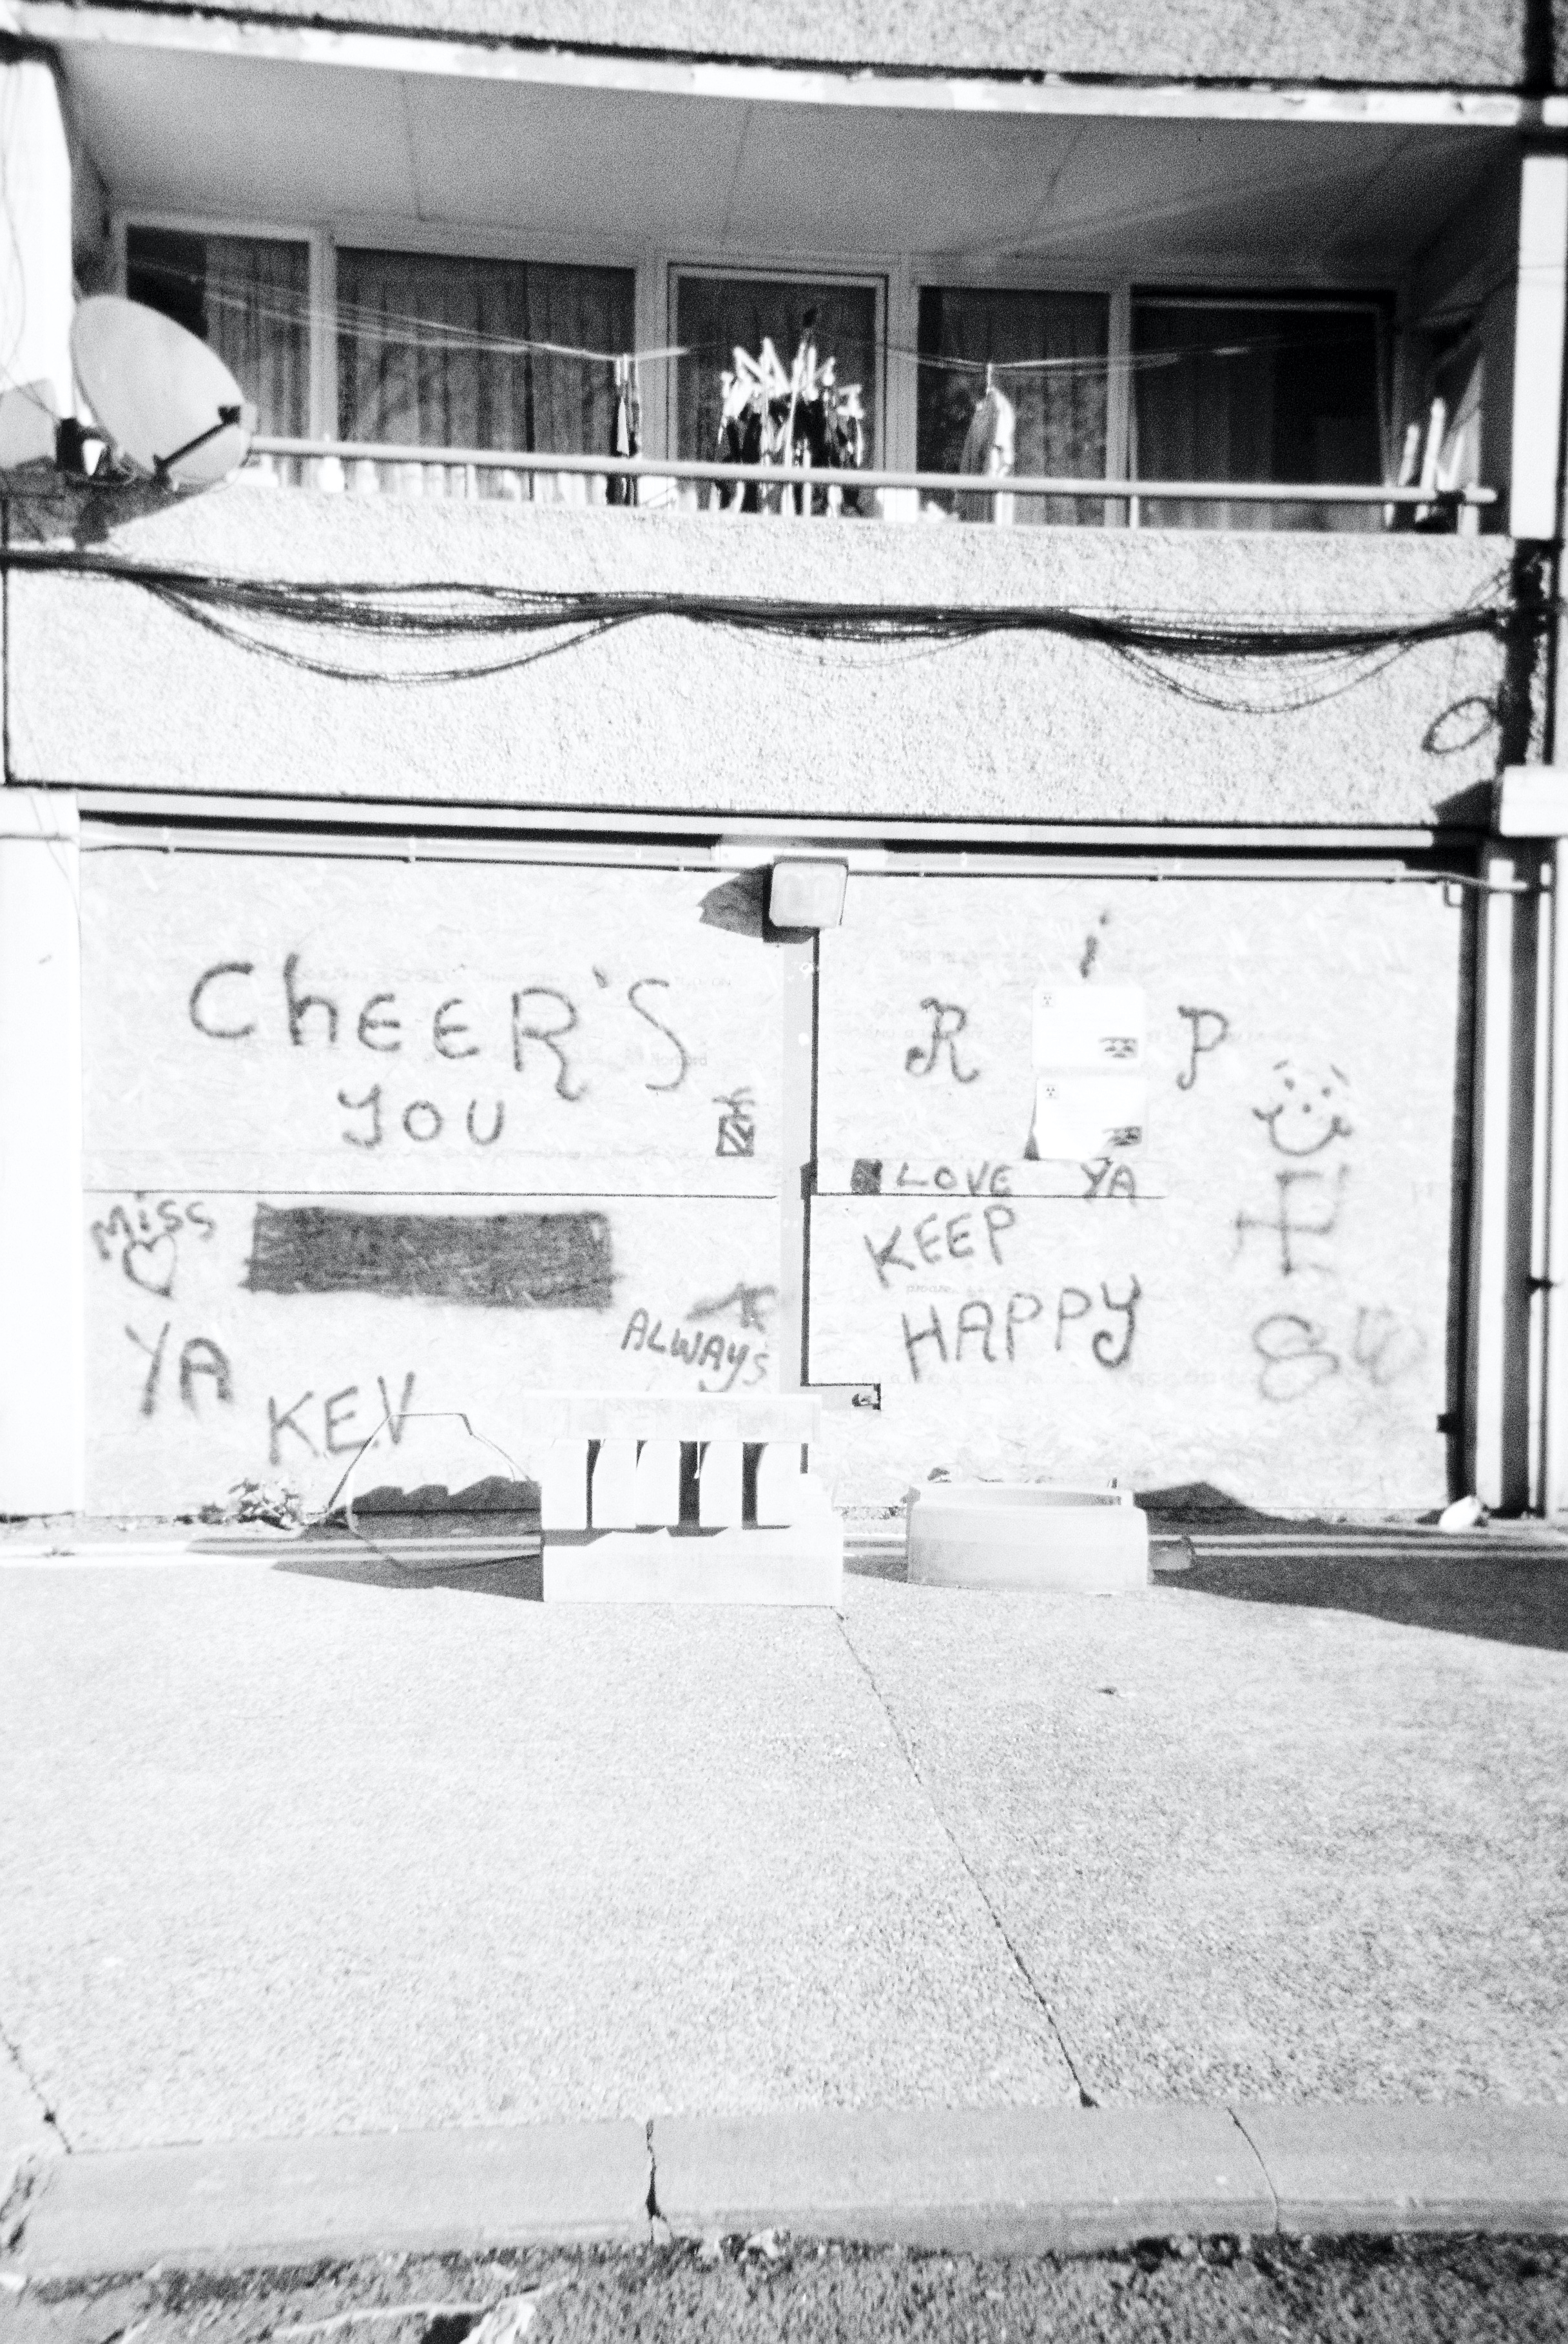 CheER'S
YOU
MiSS
YA
KEV
ALWAYS
R i P
LOVE YA
KEEP
HAPPY